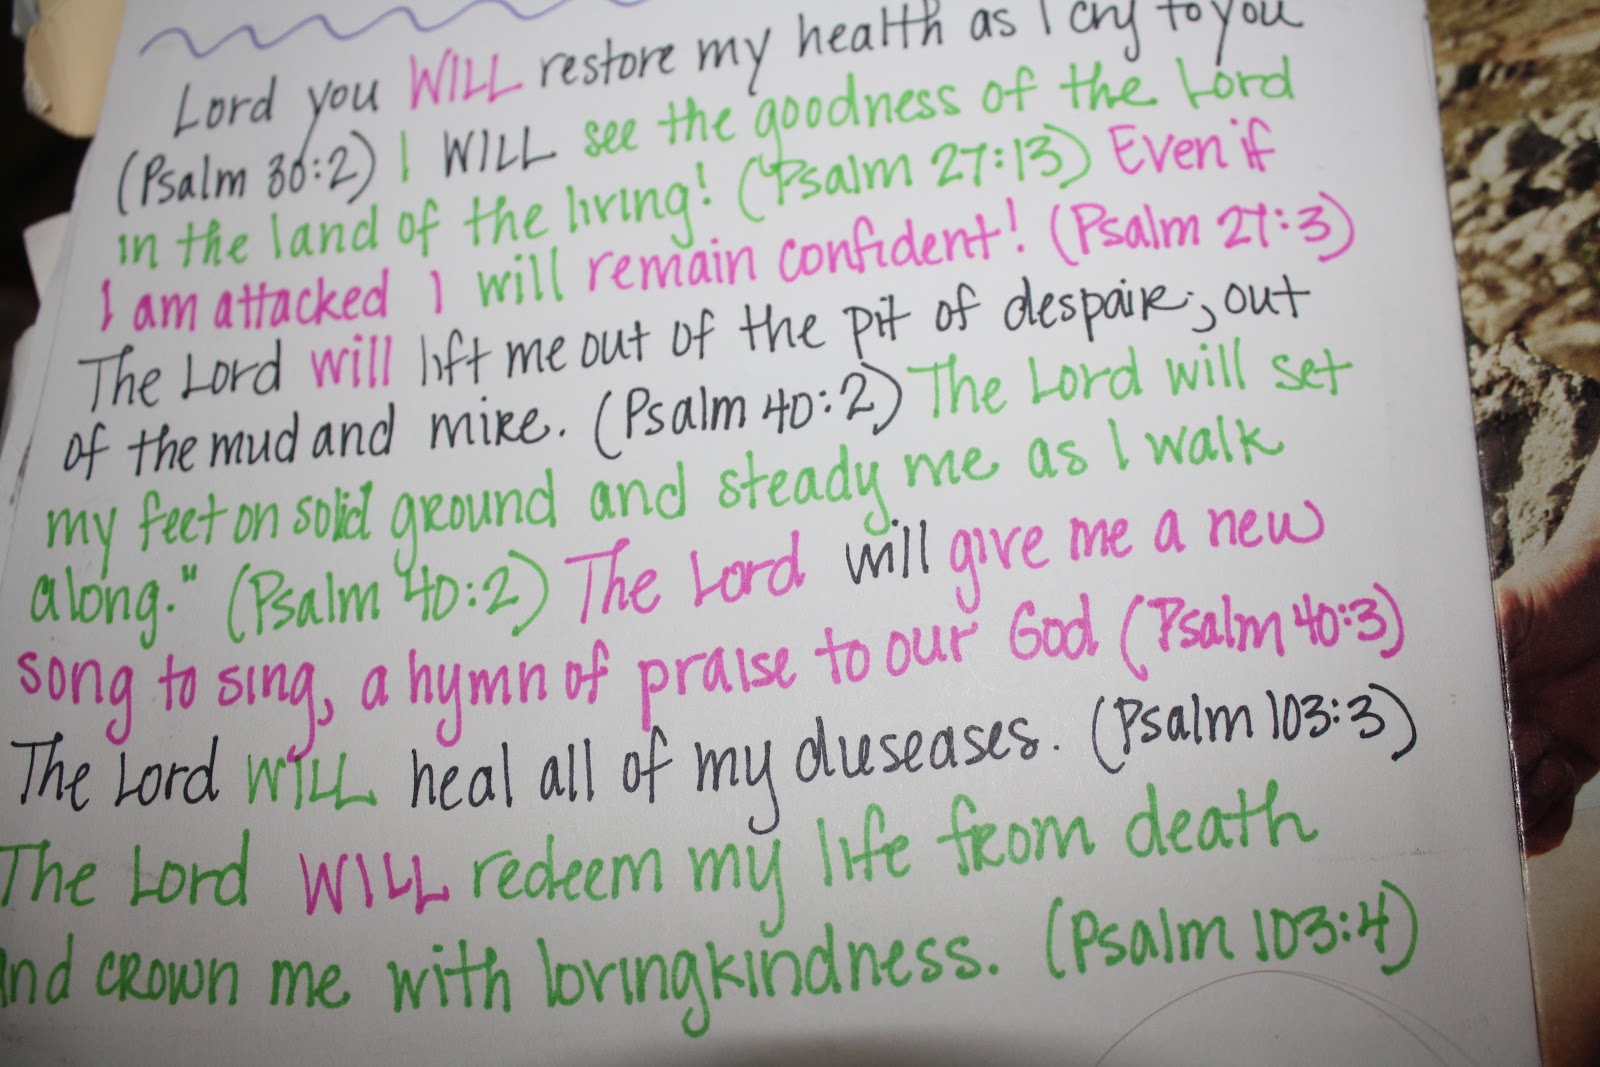 Lord you WILL restore my health as I cry to you
(Psalm 30:2) I WILL see the goodness of the Lord
in the land of the living! (Psalm 27:13) Even if
I am attacked I will remain confident! (Psalm 27:3)
The Lord will lift me out of the pit of despair; out
of the mud and mire. (Psalm 40:2) The Lord will set
my feet on solid ground and steady me as I walk
along." (Psalm 40:2) The Lord will give me a new
song to sing, a hymn of praise to our God (Psalm 40:3)
The Lord WILL heal all of my diseases. (Psalm 103:3)
The Lord WILL redeem my life from death
and crown me with lovingkindness. (Psalm 103:4)